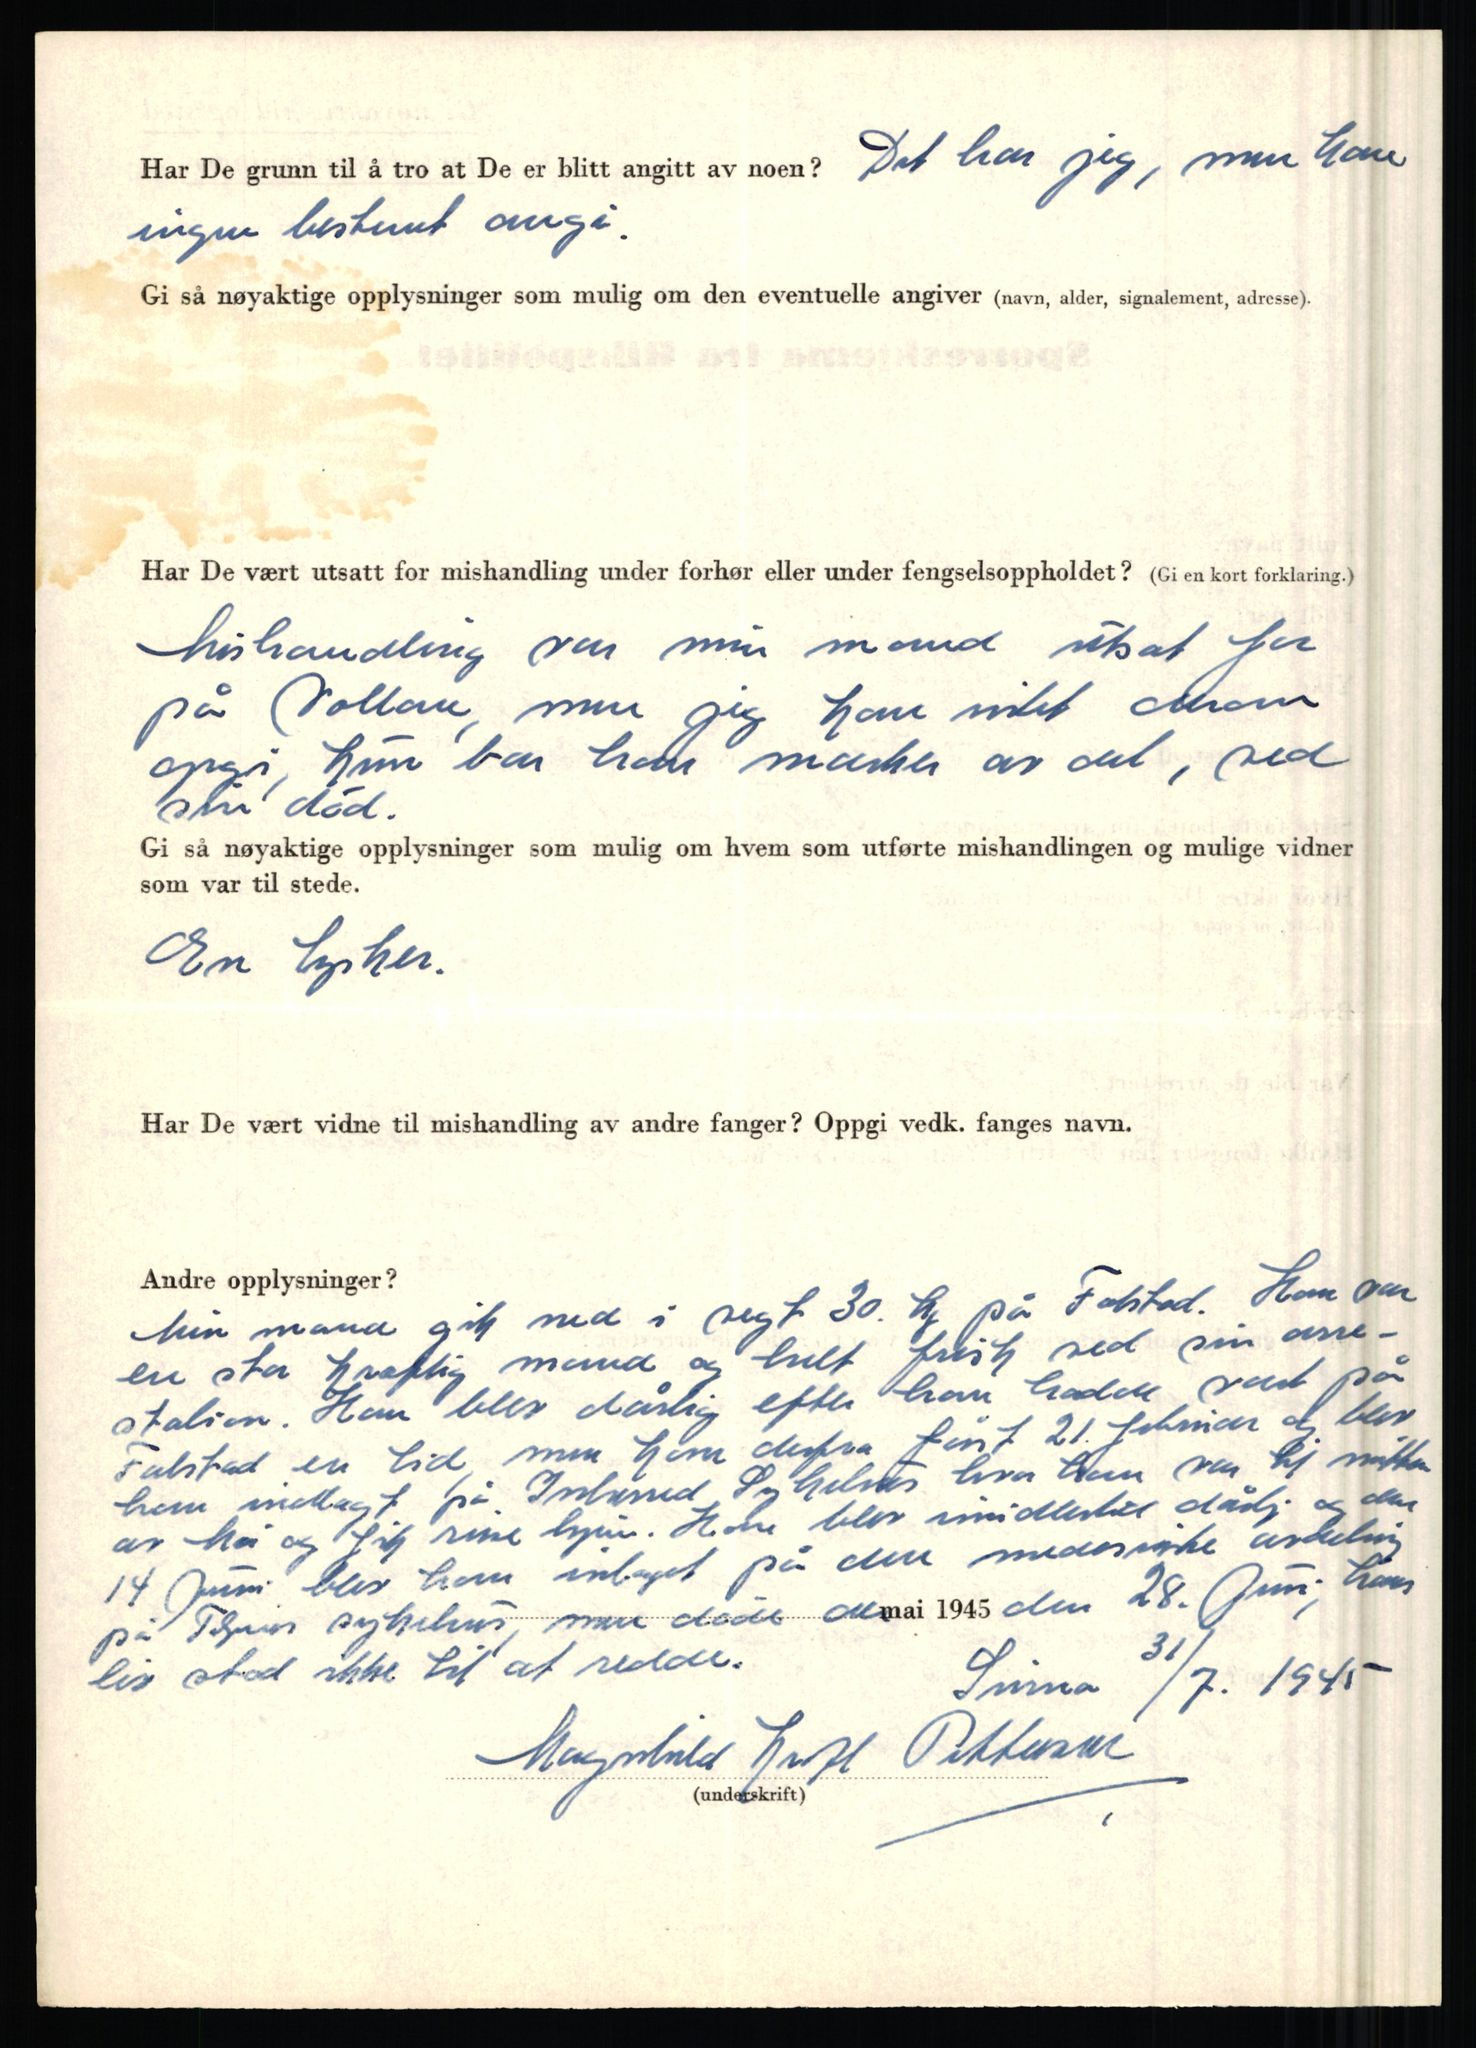 Har De grunn til å tro at De er blitt angitt av noen? Det har jeg, men kan
ingen bestemt angi.
Gi så nøyaktige opplysninger som mulig om den eventuelle angiver (navn, alder, signalement, adresse).
Har De vært utsatt for mishandling under forhør eller under fengselsoppholdet? (Gi en kort forklaring.)
Mishandling var min mand utsat for
på Vollan, men jeg kan intet derom
opgi, kun bar han merker av det, ved
sin död.
Gi så nøyaktige opplysninger som mulig om hvem som utførte mishandlingen og mulige vidner
som var til stede.
En tysker.
Har De vært vidne til mishandling av andre fanger? Oppgi vedk. fanges navn.
Andre opplysninger?
Min mand gik ned i vegt 30. kg på Falstad. Han var
en stor kraftig mand og helt frisk ved sin arre-
stasion. Han blev dårlig efter han hadde vært på
Falstad en tid, men kom derfra först 21. februar og blev
han indlagt på Sykehus hvor han var til midten
av Mai og fik reise hjem. Han blev imidlertid dårlig og den
14 Juni blev han inlaget på den medesinske avdeling
på sykehus, men døde den mai 1945 den 28. Juni, hans
liv stod ikke til at redde.
31/7. 1945
Magnhild Pettersen
(underskrift)